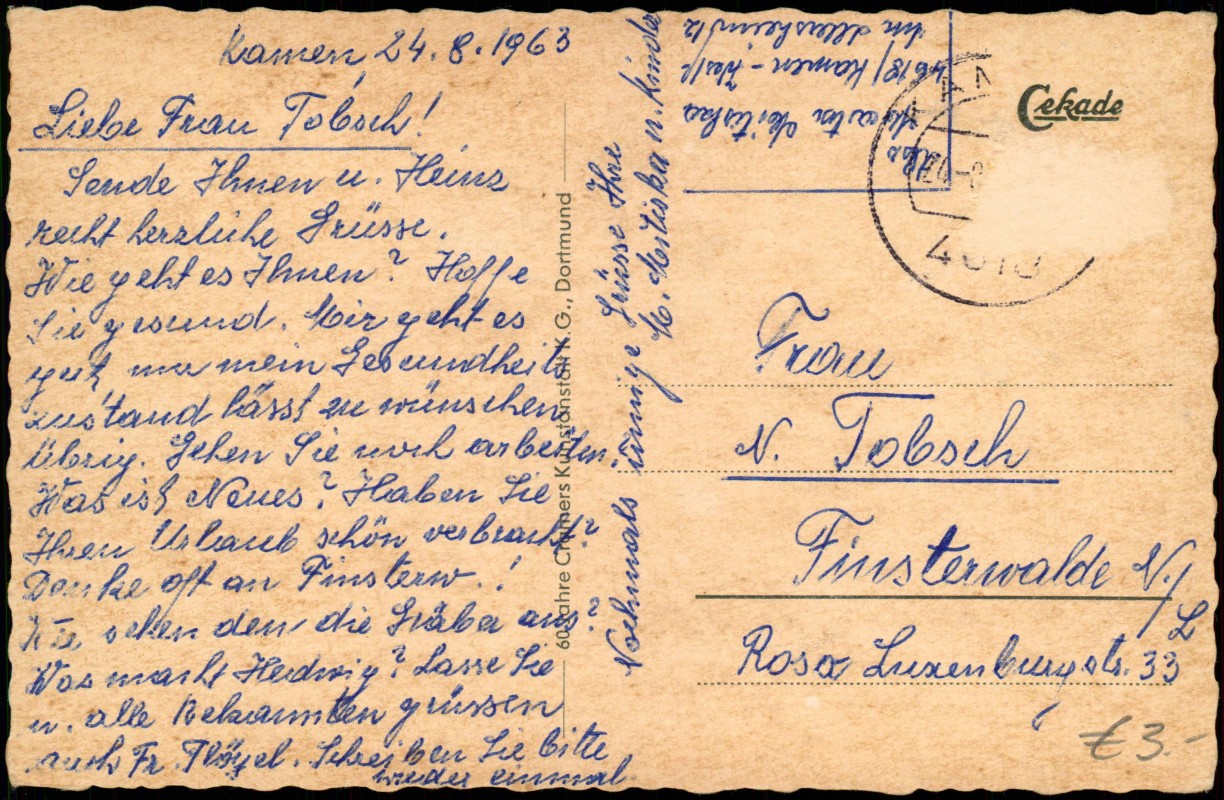 Kamen, 24. 8. 1963
Liebe Frau Tobsch!
Sende Ihnen u. Heinz
recht herzliche Grüsse.
Wie geht es Ihnen? Hoffe
Sie gesund. Mir geht es
gut, nur mein Gesundheits
zustand lässt zu wünschen
übrig. Gehen Sie noch arbeiten.
Was ist Neues? Haben Sie
Ihren Urlaub schön verbracht?
Denke oft an Finsterw.!
Wie sehen den die Gräber aus?
Was macht Hedwig? Lasse Sie
u. alle Bekannten grüssen
auch Fr. Flögel. Schreiben Sie bitte
wieder einmal.
Nochmals innige Grüsse Ihre
M. Mitiska u. Kinder
60 Jahre Cramers Kunstanstalt K.G., Dortmund
Abs.
4618 / Kamen - Westf
Cekade
24.-8.
4618
Frau
N. Tobsch
Finsterwalde N./
L
Rosa Luxenburgstr. 33
€ 3.-